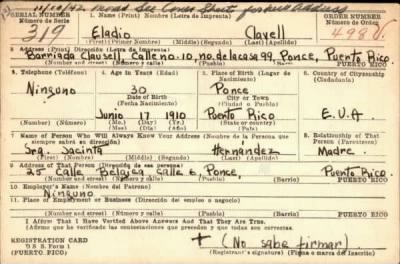 11/10/42 moved See Cover Sheet for new address
SERIAL NUMBER 1. Name (Print) Nombre (Letra de Imprenta) ORDER NUMBER
Número de Serie Número de Orden
319 Eladio Clavell 498
(First) (Primer Nombre) (Middle) (Segundo) (Last) (Apellido)
2. Address (Print) Dirección (Letra de Imprenta)
Barriada Clausell Calle no. 10, no. de la casa 99, Ponce, Puerto Rico
(Number and street) (Número y calle) (Barrio) PUERTO RICO
3. Telephone (Teléfono) 4. Age in Years (Edad) 5. Place of Birth (Lugar de Nacimiento) 6. Country of Citizenship (Ciudadanía)
Ninguno 30 Ponce
Date of Birth City or Town
(Fecha Nacimiento) (Ciudad o Pueblo)
Junio 17 1910 Puerto Rico E.U.A
(Mo.) (Day) (Yr.) (State or country)
(Mes) (Día) (Año)
7. Name of Person Who Will Always Know Your Address (Nombre de la Persona que siempre sabrá su dirección) 8. Relationship of That Person (Parentesco)
Sra. Jacinta Hernandez Madre
(First) (Nombre) (Middle) (Segundo) (Last) (Apellido)
9. Address of That Person (Dirección de esa persona)
25 Calle Belgica calle 6, Ponce, Puerto Rico
(Number and street) (Número y calle) (Barrio) PUERTO RICO
10. Employer's Name (Nombre del Patrono)
Ninguno
11. Place of Employment or Business (Dirección del empleo o negocio)
(Number and street) (Número y calle) (Barrio) PUERTO RICO
I Affirm That I Have Verified Above Answers and That They Are True.
(Afirmo que he verificado las contestaciones que preceden y que todas son correctas.
REGISTRATION CARD
D. S. S. Form 1
(PUERTO RICO)
+ (No sabe firmar)
(Registrant's signature) (Firma o marca del Inscrito)